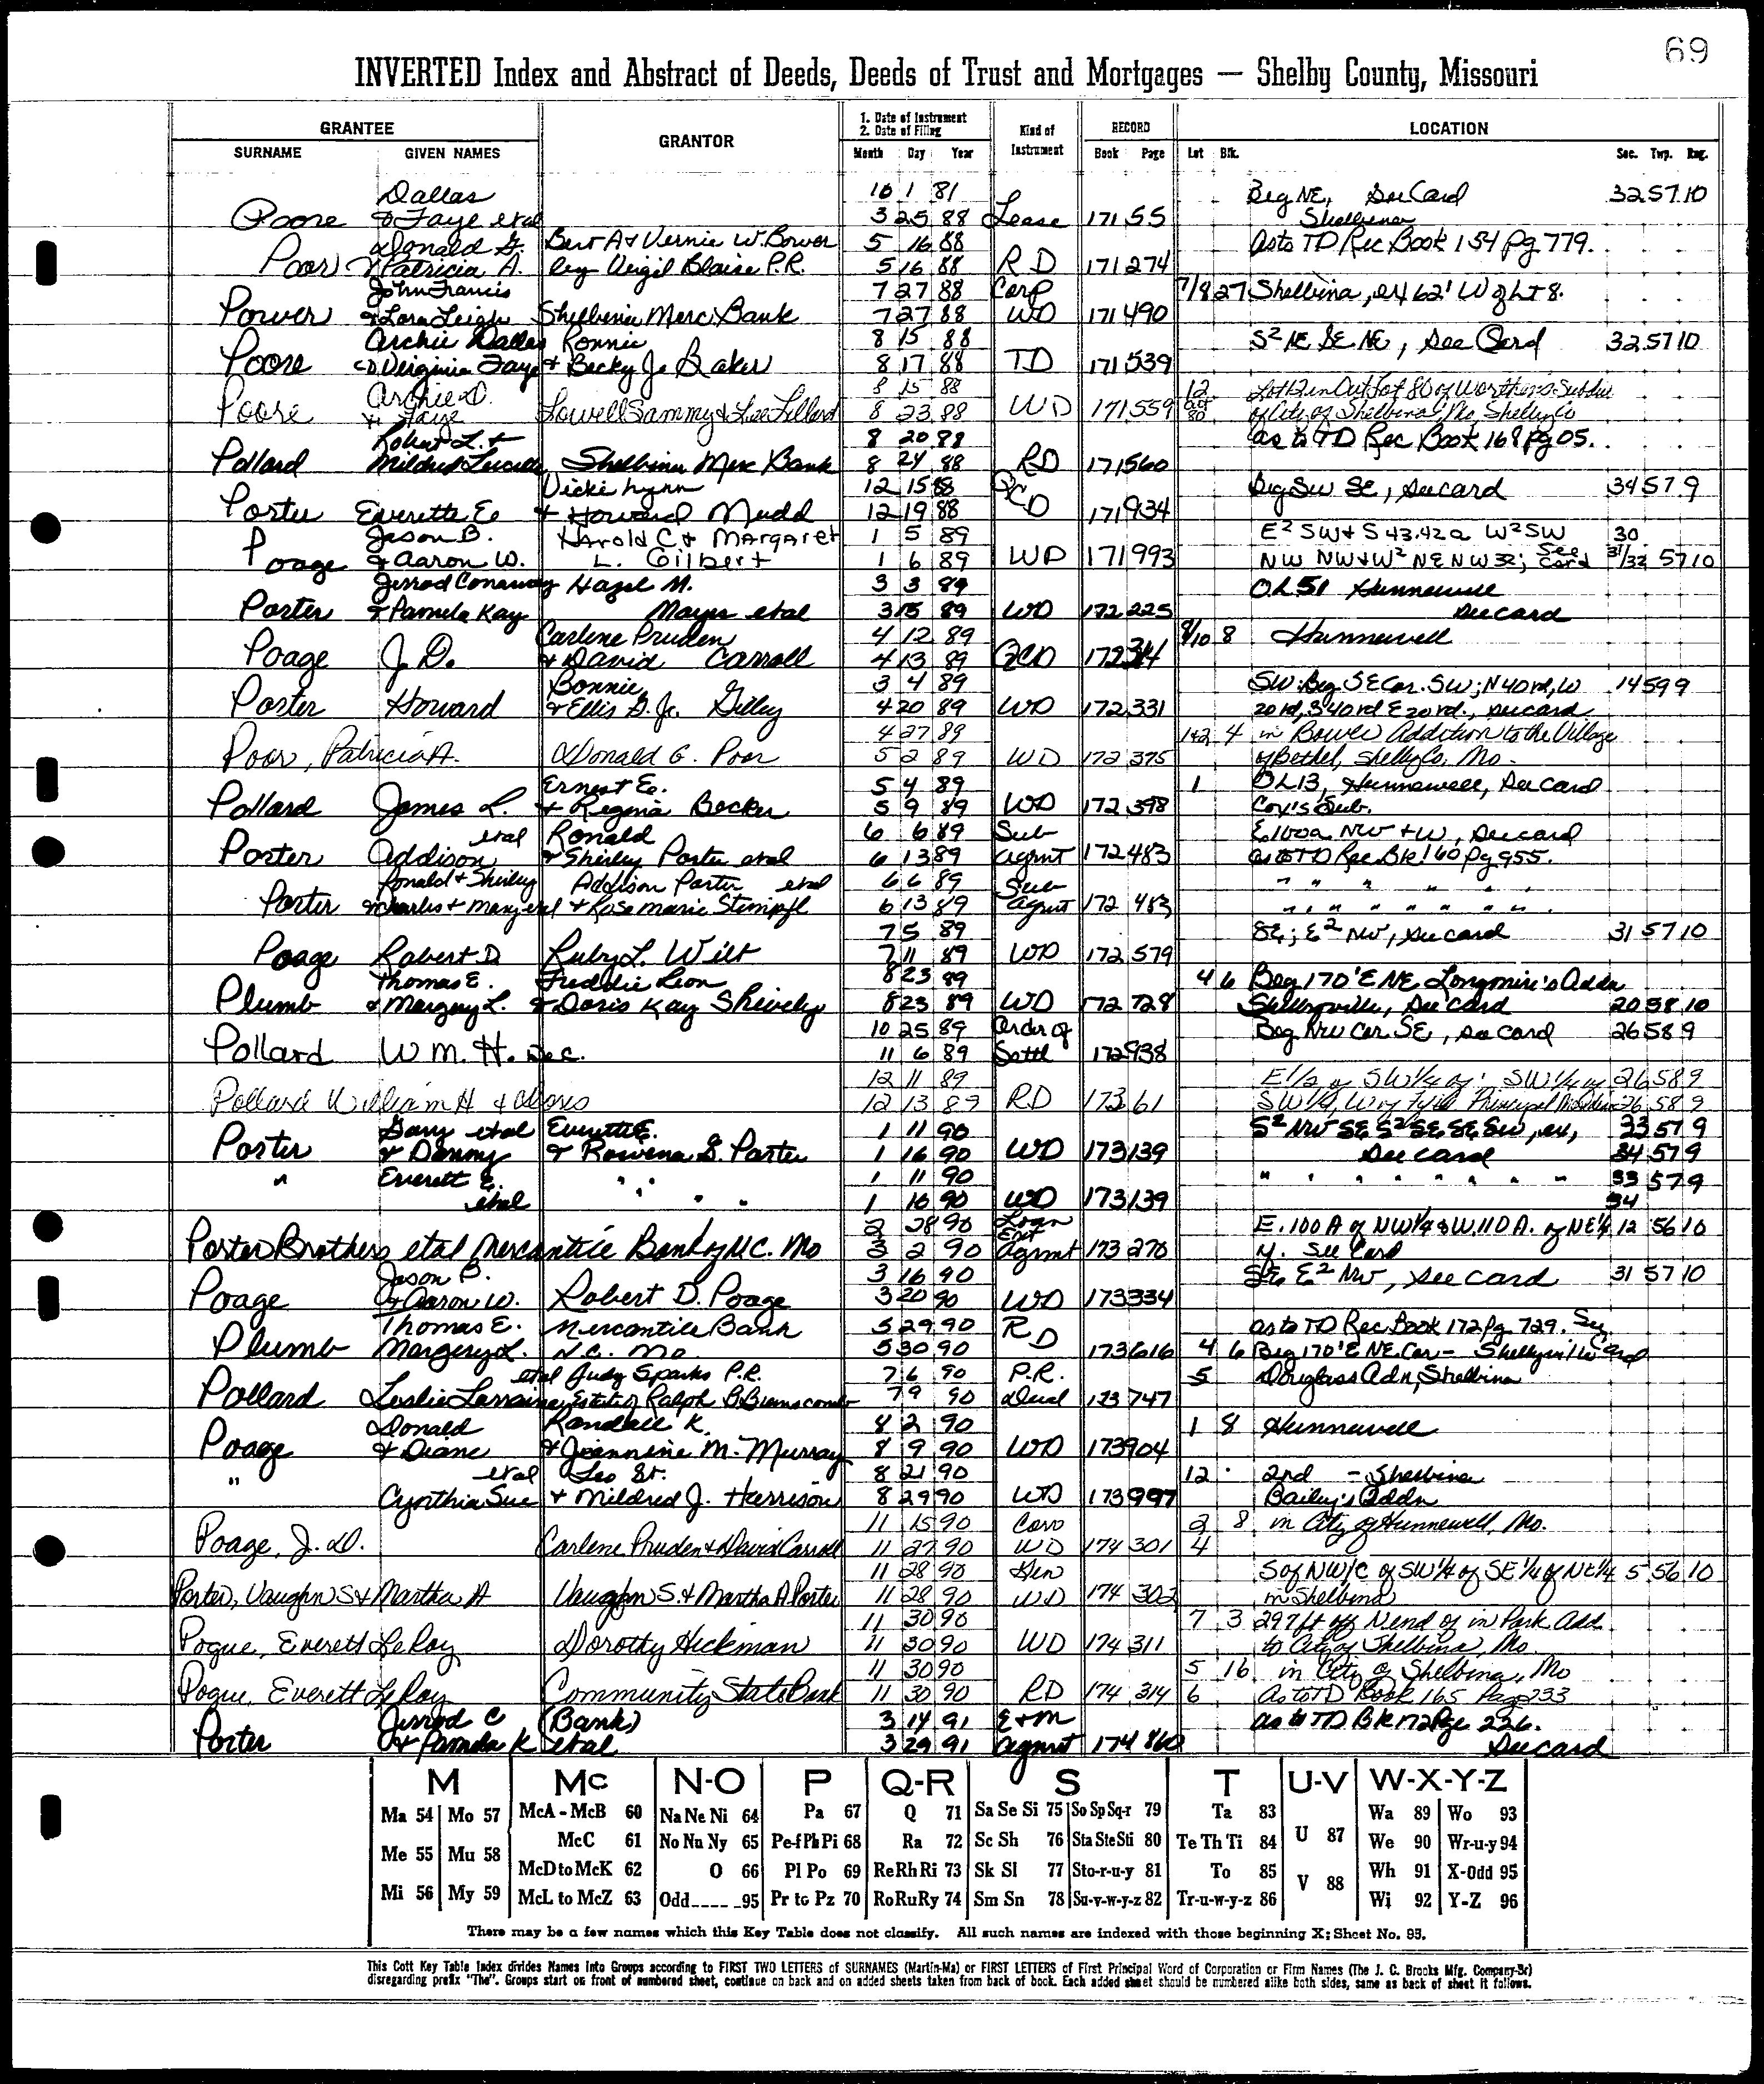 69
INVERTED Index and Abstract of Deeds, Deeds of Trust and Mortgages — Shelby County, Missouri
GRANTEE GRANTOR 1. Date of Instrument 2. Date of Filing Kind of Instrument RECORD LOCATION
SURNAME GIVEN NAMES Month Day Year Book Page Lot Blk. Sec. Twp. Rng.
Dallas 10 1 81 Beg NE, See Card 32 57 10
Poore & Faye etal 3 25 88 Lease 171 55 Shelbina
Donald G. Bert A & Vernie W. Bower 5 16 88 As to TD Rec Book 154 Pg 779.
Poor & Patricia A. by Virgil Blaise P.R. 5 16 88 RD 171 274
John Francis 7 27 88 Corp 7/8 27 Shelbina, 62' W of Lt 8.
Power & Lora Leigh Shelbina Merc Bank 7 27 88 WD 171 490
Archie Dallas Ronnie 8 15 88 S2 NE SE NE, See Card 32 57 10
Poore & Virginia Faye & Becky Jo Baker 8 17 88 TD 171 539
Archie D. 8 15 88 12 Lot 12 in Out Lot 80 of Worthen's Subdiv
Poore & Faye Lowell Sammy & Lea Lillard 8 23 88 WD 171 559 Out 80 of City of Shelbina, Mo, Shelby Co
Robert L. & 8 20 88 as to TD Rec Book 168 Pg 05.
Pollard Mildred Lucille Shelbina Merc Bank 8 24 88 RD 171 560
Vicki Lynn 12 15 88 Beg SW SE, See card 34 57 9
Porter Everette E. & Howard Mudd 12 19 88 QCD 171 934
Jason B. Harold C & Margaret 1 5 89 E2 SW & S 43.42a W2SW 30
Poage & Aaron W. L. Gilbert 1 6 89 WD 171 993 NW NW & W2 NE NW 32; See Card 31/32 57 10
Jerrod Conaway Hazel M. 3 3 89 OL 51 Hunnewell
Porter & Pamela Kay Mayes etal 3 15 89 WD 172 225 See card
Carlene Pruden 4 12 89 9/10 8 Hunnewell
Poage J. D. & David Carroll 4 13 89 QCD 172 314
Bonnie 3 4 89 SW. Beg SE Cor. SW; N 40rd, W 14 59 9
Porter Howard & Ellis G. Jr. Gilley 4 20 89 WD 172 331 20rd, S 40rd E 20rd., See card
4 27 89 1&2 4 in Bower Addition to the Village
Poor, Patricia A. Donald G. Poor 5 2 89 WD 172 375 of Bethel, Shelby Co, Mo.
Ernest E. 5 4 89 1 OL 13, Hunnewell, See Card
Pollard James L. & Regina Becker 5 9 89 WD 172 398 Cox's Sub.
etal Ronald 6 6 89 Sub E. 100a NW & W, See card
Porter Addison & Shirley Porter etal 6 13 89 agmt 172 483 as to TD Rec Bk 160 Pg 955.
Ronald & Shirley Addison Porter etal 6 6 89 Sub " " " " " "
Porter Charles & Mary etal & Rose Marie Stimpfl 6 13 89 agmt 172 483 " " " " " " "
7 5 89 SE; E2 NW, See card 31 57 10
Poage Robert D Ruby L. Wilt 7 11 89 WD 172 579
Thomas E. Freddie Leon 8 23 89 4 6 Beg 170' E NE Longmire's Addn
Plumb & Margery L. & Doris Kay Shively 8 23 89 WD 172 728 Shelbyville, See Card 20 58 10
10 25 89 Order of Beg NW Cor SE, See Card 26 58 9
Pollard Wm. H. Dec. 11 6 89 Settl 172 938
12 11 89 E 1/2 of SW 1/4 of SW 1/4 of 26 58 9
Pollard William H & Doris 12 13 89 RD 173 61 SW 1/4, W of Fifth Principal Meridian 26 58 9
Gary etal Everette E. 1 11 90 S2 NW SE S2 SE SE SW, 33 57 9
Porter & Danny & Rowena G. Porter 1 16 90 WD 173 139 See card 34 57 9
" Everett E. " " 1 11 90 " " " " " " " 33 57 9
etal " " 1 16 90 WD 173 139 34
2 28 90 Loan Ext E. 100 A of NW 1/4 & W. 110 A. of NE 1/4 12 56 10
Porter Brothers etal Mercantile Bank of N.C. Mo 3 2 90 Agmnt 173 270 See Card
Jason B. 3 16 90 SE, E2 NW, See Card 31 57 10
Poage & Aaron W. Robert D. Poage 3 20 90 WD 173 334
Thomas E. Mercantile Bank 5 29 90 R as to TD Rec Book 172 Pg 729.
Plumb Margery L. N.C. Mo. 5 30 90 D 173 616 4 6 Beg 170' E NE. Cor - Shelbyville Card
etal Judy Sparks P.R. 7 6 90 P.R. 5 Douglass Adn, Shelbina
Pollard Leslie Lorraine Estate of Ralph B Brunscomb 7 9 90 Deed 173 747
Donald Randall K. 8 2 90 1 8 Hunnewell
Poage & Diane & Jeannine M. Murray 8 9 90 WD 173 904
" etal Leo Sr. 8 21 90 12 2nd - Shelbina
Cynthia Sue & Mildred J. Harrison 8 29 90 WD 173 997 Bailey's Addn
11 15 90 Corr 2 8 in City of Hunnewell, Mo.
Poage, J. D. Carlene Pruden & David Carroll 11 27 90 WD 174 301 4
11 28 90 Gen S of NW/C of SW 1/4 of SE 1/4 of NE 1/4 5 56 10
Porter, Vaughn S & Martha A Vaughn S. & Martha A Porter 11 28 90 WD 174 302 in Shelbina
11 30 90 7 3 297 ft off N end of in Park Add.
Pogue, Everett LeRoy Dorothy Hickman 11 30 90 WD 174 311 to City of Shelbina, Mo
11 30 90 5 16 in City of Shelbina, Mo
Pogue, Everett LeRoy Community State Bank 11 30 90 RD 174 314 6 As to TD Book 165 Page 233
Jerrod C (Bank) 3 14 91 E & M as to TD Bk 172 Pge 226.
Porter & Pamela K etal 3 29 91 agmnt 174 860 See card
M Mc N-O P Q-R S T U-V W-X-Y-Z
Ma 54 Mo 57 McA - McB 60 Na Ne Ni 64 Pa 67 Q 71 Sa Se Si 75 So Sp Sq-r 79 Ta 83 U 87 Wa 89 Wo 93
Me 55 Mu 58 McC 61 No Nu Ny 65 Pe-f Ph Pi 68 Ra 72 Sc Sh 76 Sta Ste Sti 80 Te Th Ti 84 We 90 Wr-u-y 94
McD to McK 62 O 66 Pl Po 69 Re Rh Ri 73 Sk Sl 77 Sto-r-u-y 81 To 85 V 88 Wh 91 X-Odd 95
Mi 56 My 59 McL to McZ 63 Odd 95 Pr to Pz 70 Ro Ru Ry 74 Sm Sn 78 Su-v-w-y-z 82 Tr-u-w-y-z 86 Wi 92 Y-Z 96
There may be a few names which this Key Table does not classify. All such names are indexed with those beginning X; Sheet No. 95.
This Cott Key Table Index divides Names into Groups according to FIRST TWO LETTERS of SURNAMES (Martin-Ma) or FIRST LETTERS of First Principal Word of Corporation or Firm Names (The J. C. Brooks Mfg. Company-Br)
disregarding prefix "The". Groups start on front of numbered sheet, continue on back and on added sheets taken from back of book. Each added sheet should be numbered alike both sides, same as back of sheet it follows.